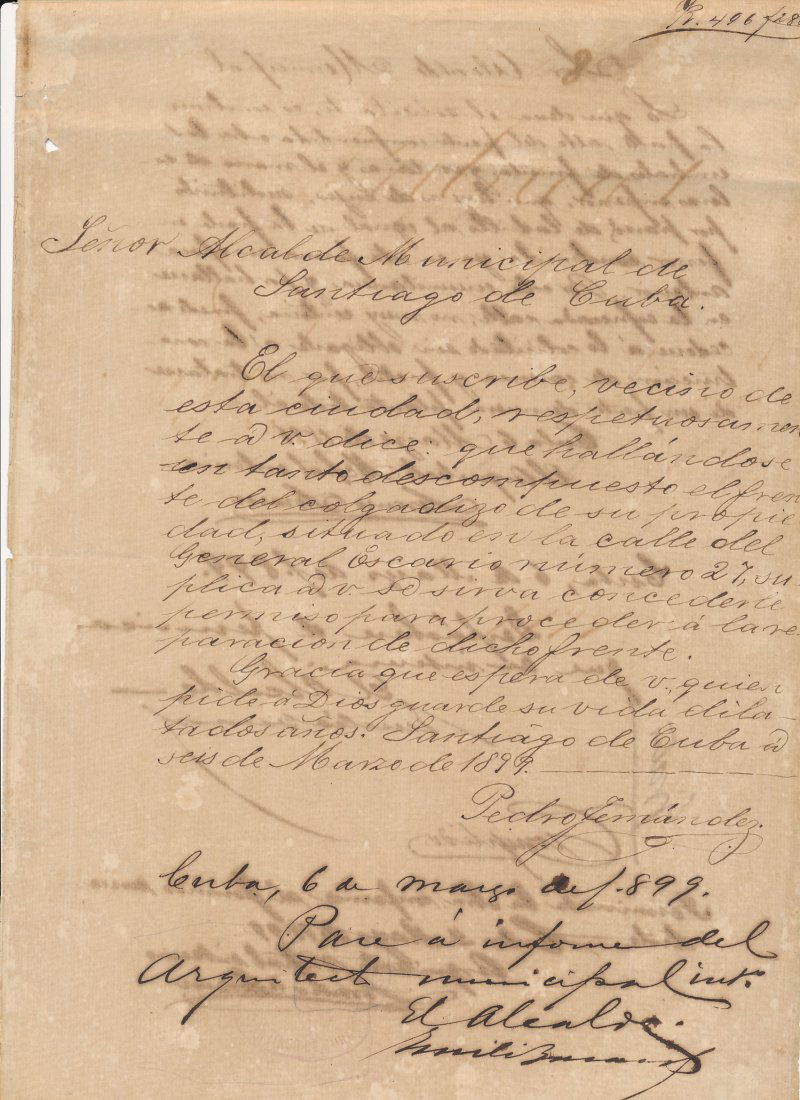 R. 496 f28
Señor Alcalde Municipal de
Santiago de Cuba.
El que suscribe, vecino de
esta ciudad, respetuosamen
te á v. dice: que hallándose
un tanto descompuesto el fren
te del colgadizo de su propie
dad, situado en la calle del
General Escario número 27, su-
plica á v. se sirva concederle
permiso para proceder á la re-
paración de dicho frente.
Gracia que espera de v., quien
pide á Dios guarde su vida dila-
tados años. Santiago de Cuba á
seis de Marzo de 1899.
Pedro Fernández.
Cuba, 6 de marzo de 1.899.
Pase á informe del
Arquitect municipal intº.
El Alcalde